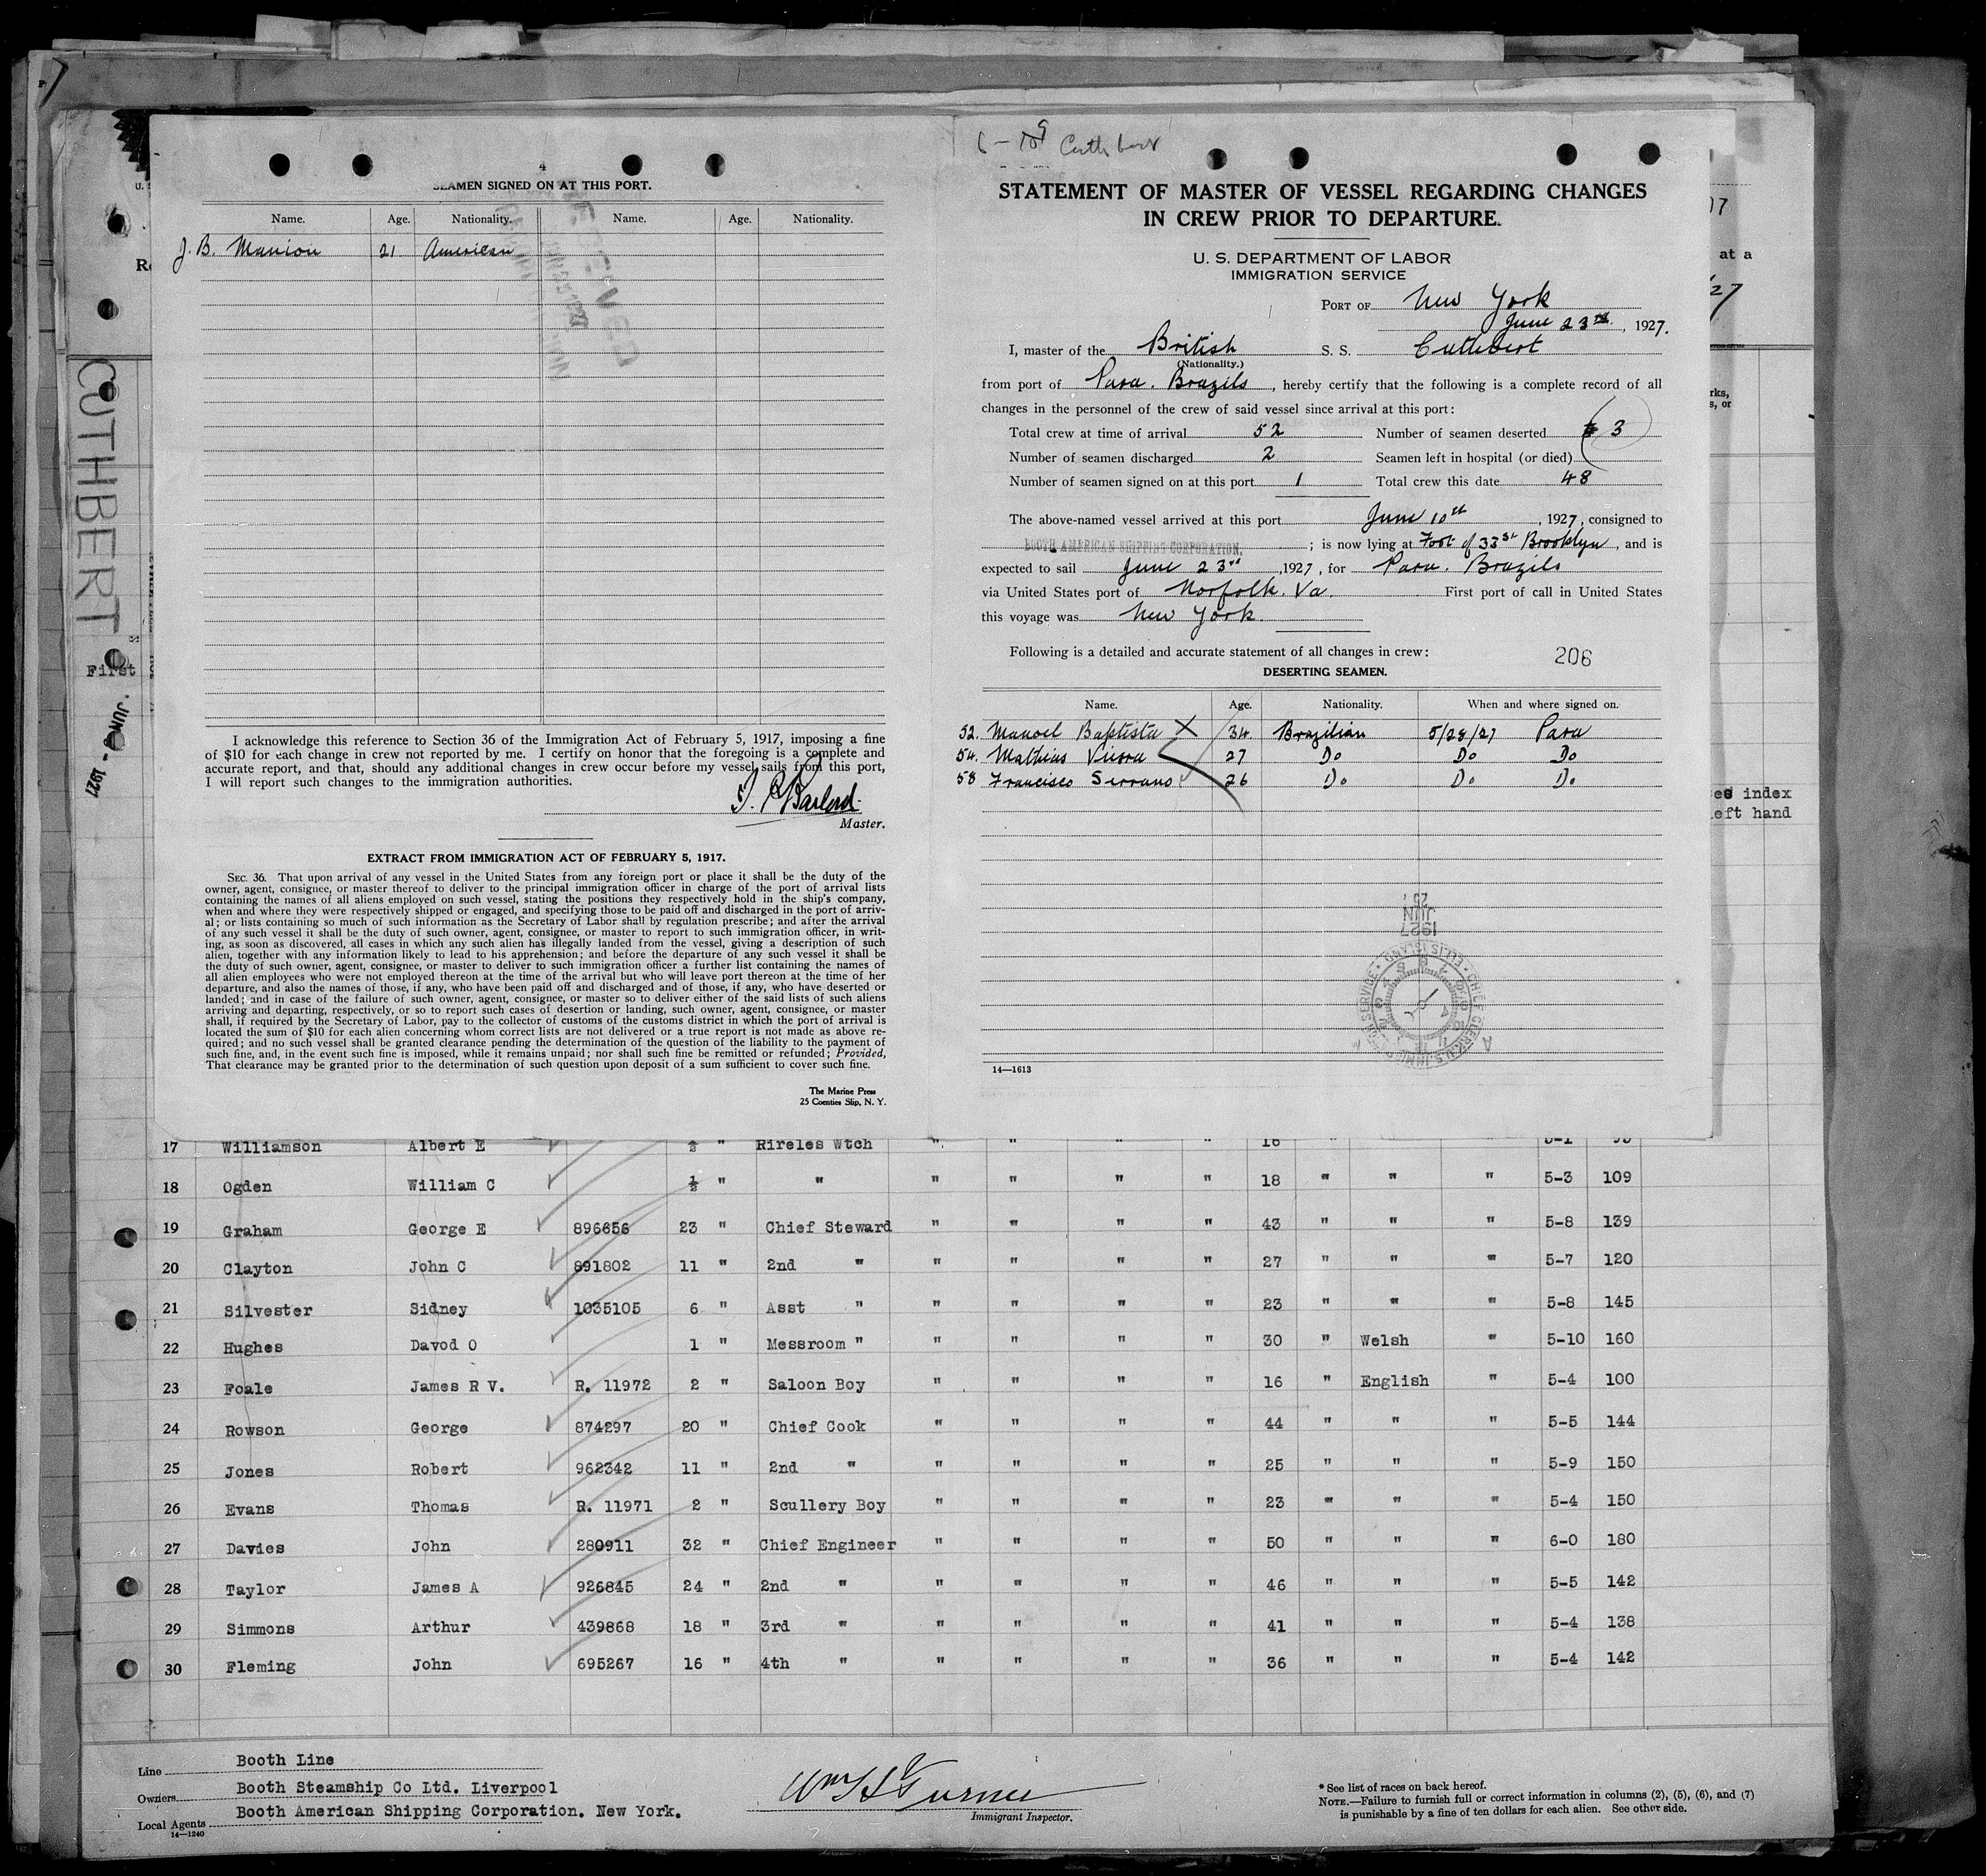 4
SEAMEN SIGNED ON AT THIS PORT.
Name. Age. Nationality. Name. Age. Nationality.
J. B. Manion 21 American
RECEIVED
I acknowledge this reference to Section 36 of the Immigration Act of February 5, 1917, imposing a fine
of $10 for each change in crew not reported by me. I certify on honor that the foregoing is a complete and
accurate report, and that, should any additional changes in crew occur before my vessel sails from this port,
I will report such changes to the immigration authorities.
Master.
EXTRACT FROM IMMIGRATION ACT OF FEBRUARY 5, 1917.
SEC. 36. That upon arrival of any vessel in the United States from any foreign port or place it shall be the duty of the
owner, agent, consignee, or master thereof to deliver to the principal immigration officer in charge of the port of arrival lists
containing the names of all aliens employed on such vessel, stating the positions they respectively hold in the ship's company,
when and where they were respectively shipped or engaged, and specifying those to be paid off and discharged in the port of arriv-
al; or lists containing so much of such information as the Secretary of Labor shall by regulation prescribe; and after the arrival
of any such vessel it shall be the duty of such owner, agent, consignee, or master to report to such immigration officer, in writ-
ing, as soon as discovered, all cases in which any such alien has illegally landed from the vessel, giving a description of such
alien, together with any information likely to lead to his apprehension; and before the departure of any such vessel it shall be
the duty of such owner, agent, consignee, or master to deliver to such immigration officer a further list containing the names of
all alien employees who were not employed thereon at the time of the arrival but who will leave port thereon at the time of her
departure, and also the names of those, if any, who have been paid off and discharged and of those, if any, who have deserted or
landed; and in case of the failure of such owner, agent, consignee, or master so to deliver either of the said lists of such aliens
arriving and departing, respectively, or so to report such cases of desertion or landing, such owner, agent, consignee, or master
shall, if required by the Secretary of Labor, pay to the collector of customs of the customs district in which the port of arrival is
located the sum of $10 for each alien concerning whom correct lists are not delivered or a true report is not made as above re-
quired; and no such vessel shall be granted clearance pending the determination of the question of the liability to the payment of
such fine, and, in the event such fine is imposed, while it remains unpaid; nor shall such fine be remitted or refunded; Provided,
That clearance may be granted prior to the determination of such question upon deposit of a sum sufficient to cover such fine.
The Marine Press
25 Coenties Slip, N. Y.
Cuthbert
STATEMENT OF MASTER OF VESSEL REGARDING CHANGES
IN CREW PRIOR TO DEPARTURE.
U. S. DEPARTMENT OF LABOR
IMMIGRATION SERVICE
PORT OF New York
June 23rd, 1927.
I, master of the British S. S. Cuthbert
(Nationality.)
from port of Para. Brazils, hereby certify that the following is a complete record of all
changes in the personnel of the crew of said vessel since arrival at this port:
Total crew at time of arrival 52 Number of seamen deserted 3
Number of seamen discharged 2 Seamen left in hospital (or died)
Number of seamen signed on at this port 1 Total crew this date 48
The above-named vessel arrived at this port June 10th, 1927, consigned to
BOOTH AMERICAN SHIPPING CORPORATION. ; is now lying at Foot of 33st Brooklyn, and is
expected to sail June 23rd, 1927, for Para. Brazils
via United States port of Norfolk. Va. First port of call in United States
this voyage was New York.
Following is a detailed and accurate statement of all changes in crew:
206
DESERTING SEAMEN.
Name. Age. Nationality. When and where signed on.
52. Manoel Baptista X 34 Brazilian 5/28/27 Para
54. Mathias Viera 27 Do Do Do
58 Francisco Serrano 26 Do Do Do
1927
JUN
25
CHIEF CLERK, U.S. IMMIGRATION SERVICE • ELLIS ISLAND •
14—1613
CUTHBERT
First
JUN 9 - 1927
at a
rks,
s, or
index
left hand
17 Williamson Albert E ½ " Rireles Wtch " " " " 16 " " " 5-1 95
18 Ogden William C ½ " " " " " " 18 " " " 5-3 109
19 Graham George E 896656 23 " Chief Steward " " " " 43 " " " 5-8 139
20 Clayton John C 891802 11 " 2nd " " " " " 27 " " " 5-7 120
21 Silvester Sidney 1035105 6 " Asst " " " " " 23 " " " 5-8 145
22 Hughes Davod O 1 " Messroom " " " " " 30 " Welsh " 5-10 160
23 Foale James R V. R. 11972 2 " Saloon Boy " " " " 16 " English " 5-4 100
24 Rowson George 874297 20 " Chief Cook " " " " 44 " " " 5-5 144
25 Jones Robert 962342 11 " 2nd " " " " " 25 " " " 5-9 150
26 Evans Thomas R. 11971 2 " Scullery Boy " " " " 23 " " " 5-4 150
27 Davies John 280911 32 " Chief Engineer " " " " 50 " " " 6-0 180
28 Taylor James A 926845 24 " 2nd " " " " " 46 " " " 5-5 142
29 Simmons Arthur 439868 18 " 3rd " " " " " 41 " " " 5-4 138
30 Fleming John 695267 16 " 4th " " " " " 36 " " " 5-4 142
Line Booth Line
Owners Booth Steamship Co Ltd. Liverpool
Local Agents Booth American Shipping Corporation. New York.
14—1240
Wm H Turner
Immigrant Inspector.
* See list of races on back hereof.
NOTE.—Failure to furnish full or correct information in columns (2), (5), (6), and (7)
is punishable by a fine of ten dollars for each alien. See other side.